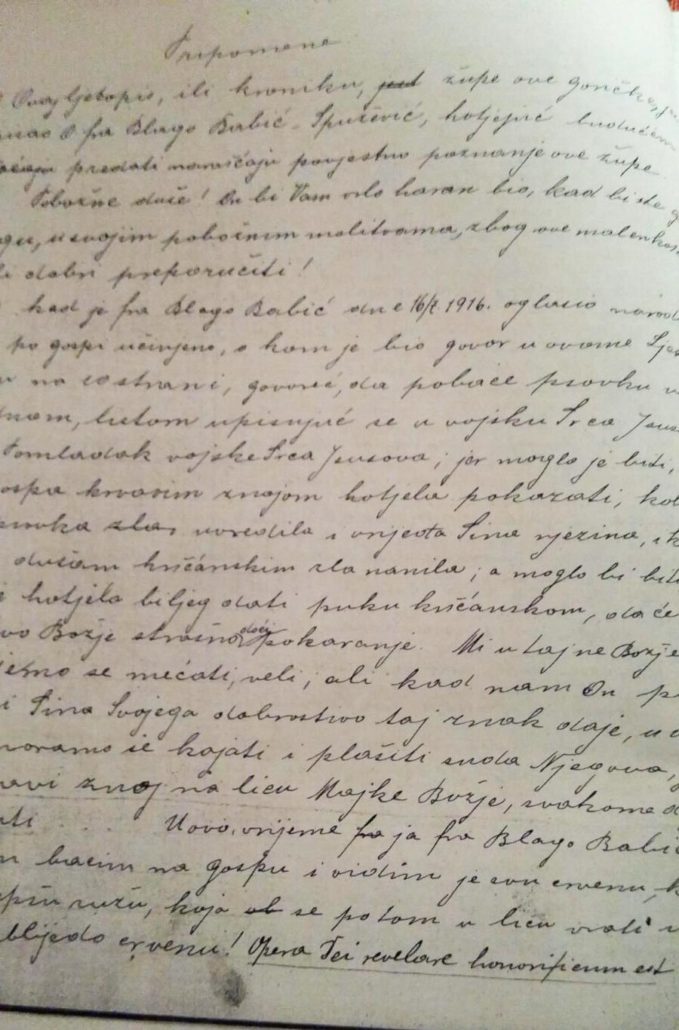 Pripomene
Ovaj ljetopis, ili kroniku, jest župe ove goričke,
O fra Blago Babić - Spužević, hotjejuć budućem
predati naraščaju povjestno poznanje ove župe
Pobožne duše! On bi Vam vrlo haran bio, kad bi ste
u svojim pobožnim molitvama, zbog ove malenkosti
dobri preporučiti!
kad je fra Blago Babić dne 1916. oglasio narodu
po gospi učinjeno, o kom je bio govor u ovome
na strani, govoreć, da pobace psovku
listom upisujuć se u vojsku Srca
Pomladak vojske Srca Jsusova; jer moglo je biti,
krvavim znojom hotjela pokazati,
psovka zlas uvredila i vrjeđa Sina njezina,
dušam kršćanskim zla nanila; a moglo bi biti
hotjela biljeg dati puku kršćanskom, da će
Božje strašno doći pokaranje. Mi u tajne Božje
se mećati, veli; ali kad nam On
i Sina Svojega dobrostivo taj znak daje,
moramo se kajati i plašiti suda Njegova,
znoj na licu Majke Božje, svakome
U ovo vrijeme fra ja fra Blago Babić
bacim na gospu i vidim je svu crvenu,
ružu, koja ob se potom u licu vrati
blijedo crvenu! Opera Dei revelare honorificum est